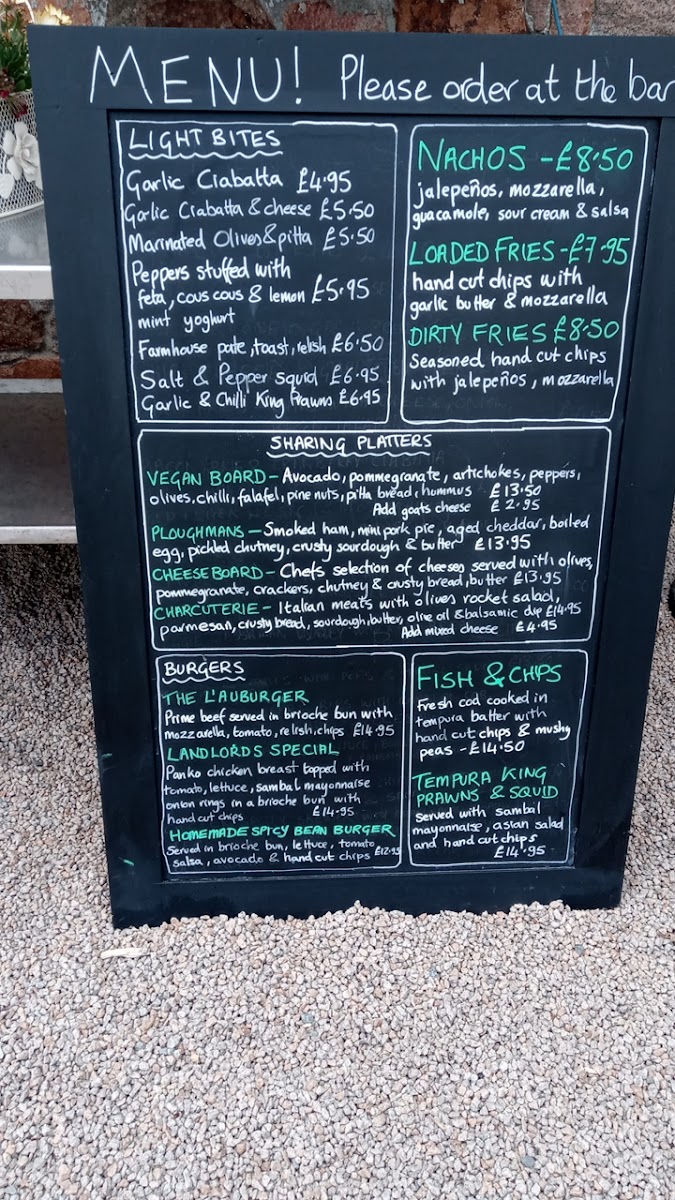 MENU! Please order at the bar
LIGHT BITES
Garlic Ciabatta £4.95
Garlic Ciabatta & cheese £5.50
Marinated Olives & pitta £5.50
Peppers stuffed with
feta, cous cous & lemon £5.95
mint yoghurt
Farmhouse pate, toast, relish £6.50
Salt & Pepper squid £6.95
Garlic & Chilli King Prawns £6.95
NACHOS - £8.50
jalepeños, mozzarella,
guacamole, sour cream & salsa
LOADED FRIES - £7.95
hand cut chips with
garlic butter & mozzarella
DIRTY FRIES £8.50
Seasoned hand cut chips
with jalepeños, mozzarella
SHARING PLATTERS
VEGAN BOARD - Avocado, pommegranate, artichokes, peppers,
olives, chilli, falafel, pine nuts, pitta bread, hummus £13.50
Add goats cheese £2.95
PLOUGHMANS - Smoked ham, mini pork pie, aged cheddar, boiled
egg, pickled chutney, crusty sourdough & butter £13.95
CHEESEBOARD - Chefs selection of cheeses served with olives,
pommegranate, crackers, chutney & crusty bread, butter £13.95
CHARCUTERIE - Italian meats with olives rocket salad,
parmesan, crusty bread, sourdough, butter, olive oil & balsamic dip £14.95
Add mixed cheese £4.95
BURGERS
THE L'AUBURGER
Prime beef served in brioche bun with
mozzarella, tomato, relish, chips £14.95
LANDLORDS SPECIAL
Panko chicken breast topped with
tomato, lettuce, sambal mayonnaise
onion rings in a brioche bun with
hand cut chips £14.95
HOMEMADE SPICY BEAN BURGER
Served in brioche bun, lettuce, tomato
salsa, avocado & hand cut chips £12.95
FISH & CHIPS
Fresh cod cooked in
tempura batter with
hand cut chips & mushy
peas - £14.50
TEMPURA KING
PRAWNS & SQUID
served with sambal
mayonnaise, asian salad
and hand cut chips
£14.95